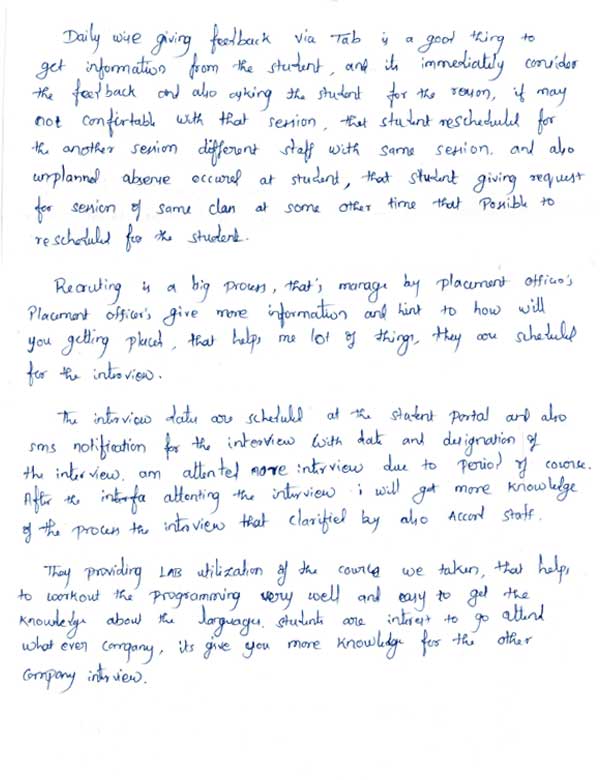 Daily wise giving feedback via Tab is a good thing to
get information from the student, and its immediately consider
the feedback and also asking the student for the reason, if may
not comfirtable with that session, that student rescheduled for
the another session different staff with same session. and also
unplanned absense occured at student, that student giving request
for session of same class at some other time that Possible to
rescheduled for the student.
Recruiting is a big process, that's manage by placement officer's
Placement officer's give more information and hint to how will
you getting placed, that helps me lot of things, they are scheduled
for the interview.
The interview dates are scheduled at the student portal and also
sms notification for the interview with date and designation of
the interview. am attented more interview due to period of course.
After the attenting the interview i will get more knowledge
of the process the interview that clarified by also Accord staff.
They providing LAB utilization of the course we taken, that helps
to workout the programming very well and easy to get the
knowledge about the languages. students are interest to go attend
what ever company, its give you more knowledge for the other
company interview.